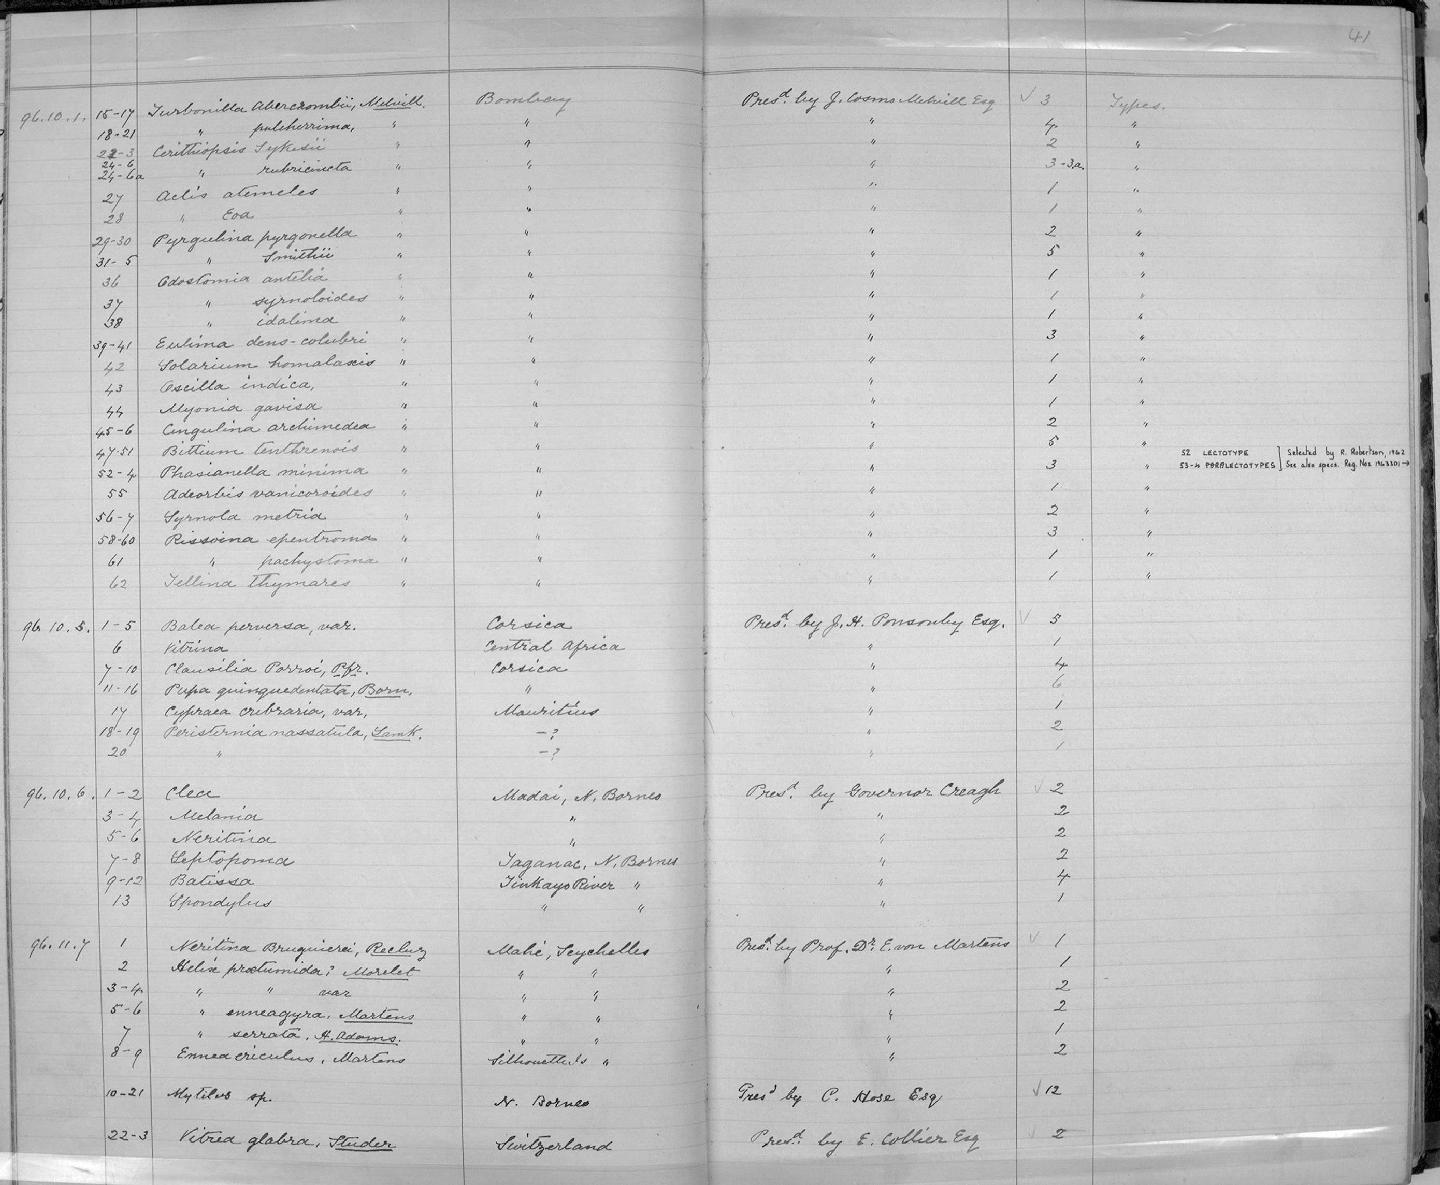 41
96.10.1. 15-17 Turbonilla Abercrombii, Melvill. Bombay Presd. by J. Cosmo Melvill Esq ✓ 3 Types.
18-21 " pulcherrima, " " " 4 "
22-3 Cerithiopsis Sykesii " " " 2 "
24-6
24-6a " rubricincta " " " 3-3a. "
27 Aclis atemeles " " " 1 "
28 " Eoa " " " 1 "
29-30 Pyrgulina pyrgonella " " " 2 "
31-5 " Smithii " " " 5 "
36 Odostomia antelia " " " 1 "
37 " syrnoloides " " " 1 "
38 " idalima " " " 1 "
39-41 Eulima dens-colubri " " " 3 "
42 Solarium homalaxis " " " 1 "
43 Oscilla indica, " " " 1 "
44 Myonia gavisa " " " 1 "
45-6 Cingulina archimedea " " " 2 "
47-51 Bittium tenthrenois " " " 5 "
52 LECTOTYPE
53-4 PARALECTOTYPES
Selected by R. Robertson, 1962
See also specs. Reg. Nos 1963301 →
52-4 Phasianella minima " " " 3 "
55 Adeorbis vanicoroides " " " 1 "
56-7 Syrnola metria " " " 2 "
58-60 Rissoina epentroma " " " 3 "
61 " pachystoma " " " 1 "
62 Tellina thymares " " " 1 "
96.10.5. 1-5 Balea perversa, var. Corsica Presd. by J. H. Ponsonby Esq. ✓ 5
6 Vitrina Central Africa " 1
7-10 Clausilia Porroi, Pfr. Corsica " 4
11-16 Pupa quinquedentata, Born. " " 6
17 Cypraea cribraria, var. Mauritius " 1
18-19 Peristernia nassatula, Lamk. -? " 2
20 " -? " 1
96.10.6. 1-2 Clea Madai, N. Borneo Presd. by Governor Creagh ✓ 2
3-4 Melania " " 2
5-6 Neritina " " 2
7-8 Leptopoma Taganac, N. Borneo " 2
9-12 Batissa Tinkayo River " " 4
13 Spondylus " " " 1
96.11.7 1 Neritina Bruguierei, Recluz Mahé, Seychelles Presd. by Prof. Dr. E. von Martens ✓ 1
2 Helix praetumida? Morelet " " " 1
3-4 " " var " " " 2
5-6 " enneagyra. Martens " " " 2
7 " serrata. H. Adams. " " " 1
8-9 Ennea criculus. Martens Silhouette Is " " 2
10-21 Mytilus sp. N. Borneo Presd by C. Hose Esq ✓ 12
22-3 Vitrea glabra, Studer Switzerland Presd. by E. Collier Esq ✓ 2